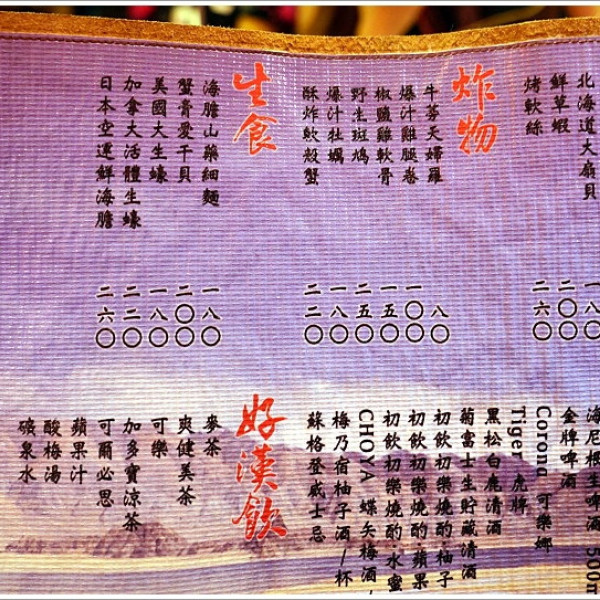 北海道大扇貝 一八〇
鮮草蝦 二〇〇
烤軟絲 二六〇
炸物
牛蒡天婦羅 八〇
爆汁雞腿卷 一〇〇
椒鹽雞軟骨 一五〇
野生斑鳩 二五〇
爆汁牡蠣 一八〇
酥炸軟殼蟹 二二〇
生食
海膽山藥細麵 一八〇
蟹膏愛干貝 二〇〇
美國大生蠔 一八〇
加拿大活體生蠔 二二〇
日本空運鮮海膽 二六〇
海尼根生啤酒 500m
金牌啤酒
Corona 可樂娜
Tiger 虎牌
黑松白鹿清酒
菊富士生貯藏清酒
初飲初樂燒酌柚子
初飲初樂燒酌蘋果
初飲初樂燒酌水蜜
CHOYA 蝶矢梅酒
梅乃宿柚子酒/杯
蘇格登威士忌
好漢飲
麥茶
爽健美茶
可樂
加多寶涼茶
可爾必思
蘋果汁
酸梅湯
礦泉水